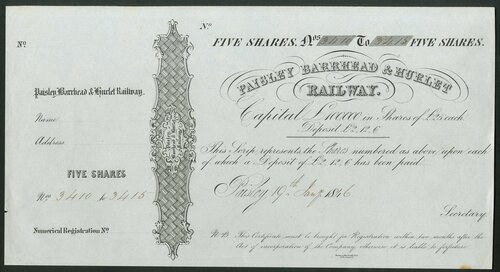 No
Paisley Barrhead & Hurlet Railway.
Name
Address
FIVE SHARES
Nos 3410 to 3415
Numerical Registration No
No
FIVE SHARES. Nos 3410 To 3415 FIVE SHARES.
PAISLEY BARRHEAD & HURLET
RAILWAY.
Capital £100000 in Shares of £25 each.
Deposit £2.12.6
This Scrip represents the Shares numbered as above, upon each
of which a Deposit of £2.12.6 has been paid.
Paisley 19th Jany 1846
Secretary.
NB. This Certificate must be brought for Registration within two months after the
Act of incorporation of the Company, otherwise it is liable to forfeiture.